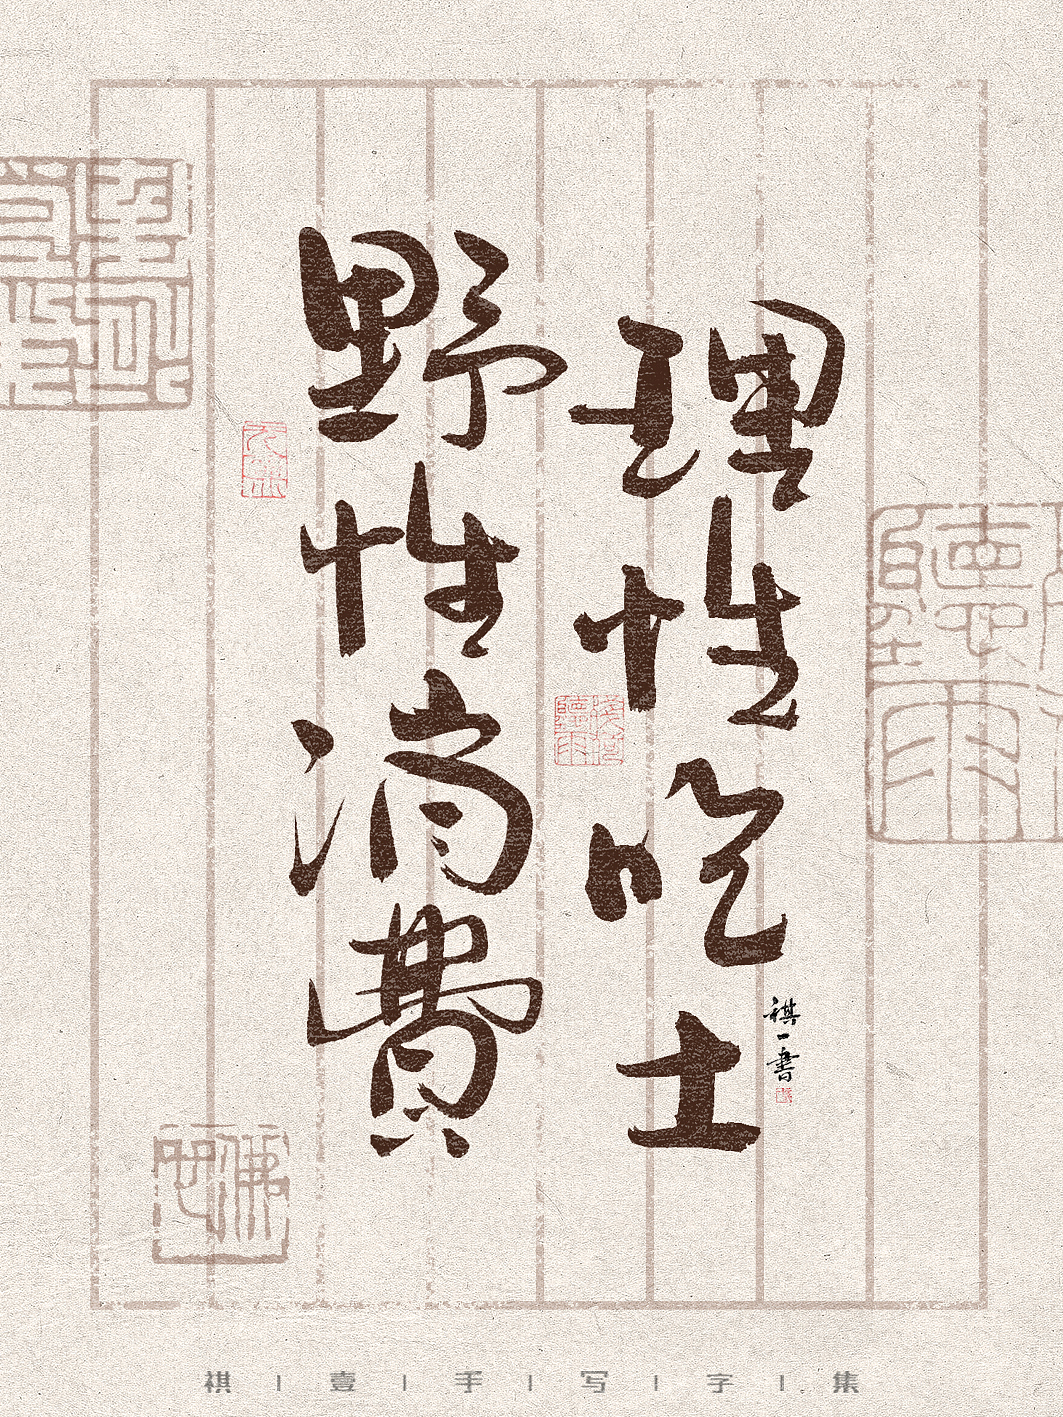 理性吃土
野性消費
祺一書
祺｜壹｜手｜写｜字｜集